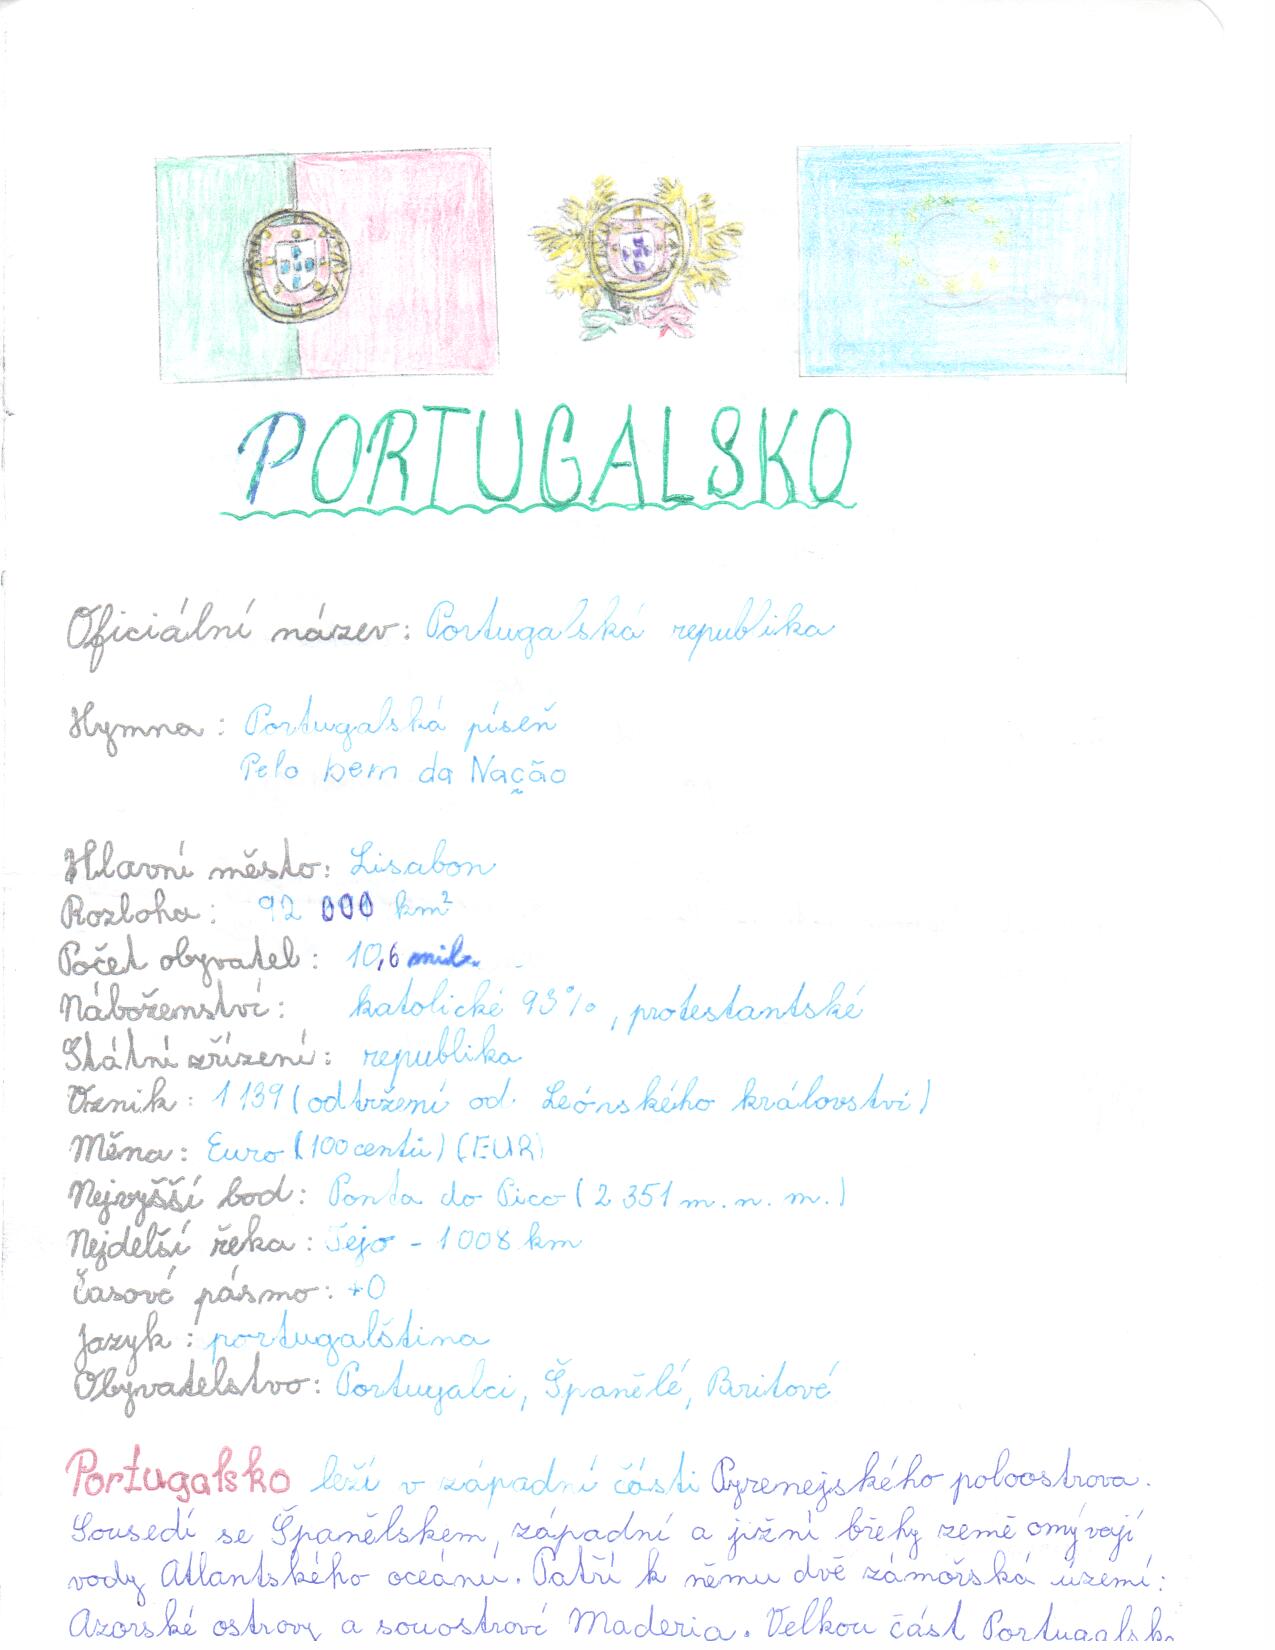 PORTUGALSKO
Oficiální název: Portugalská republika
Hymna: Portugalská píseň
Pelo bem da Nação
Hlavní město: Lisabon
Rozloha: 92 000 km²
Počet obyvatel: 10,6 mil.
Náboženství: katolické 93%, protestantské
Státní zřízení: republika
Vznik: 1139 (odtržení od Leónského království)
Měna: Euro (100 centů) (EUR)
Nejvyšší bod: Ponta do Pico (2 351 m. n. m.)
Nejdelší řeka: Tejo - 1008 km
Časové pásmo: +0
Jazyk: portugalština
Obyvatelstvo: Portugalci, Španělé, Britové
Portugalsko leží v západní části Pyrenejského poloostrova.
Sousedí se Španělskem, západní a jižní břehy země omývají
vody Atlantského oceánu. Patří k němu dvě zámořská území:
Azorské ostrovy a souostroví Maderia. Velkou část Portugalsk